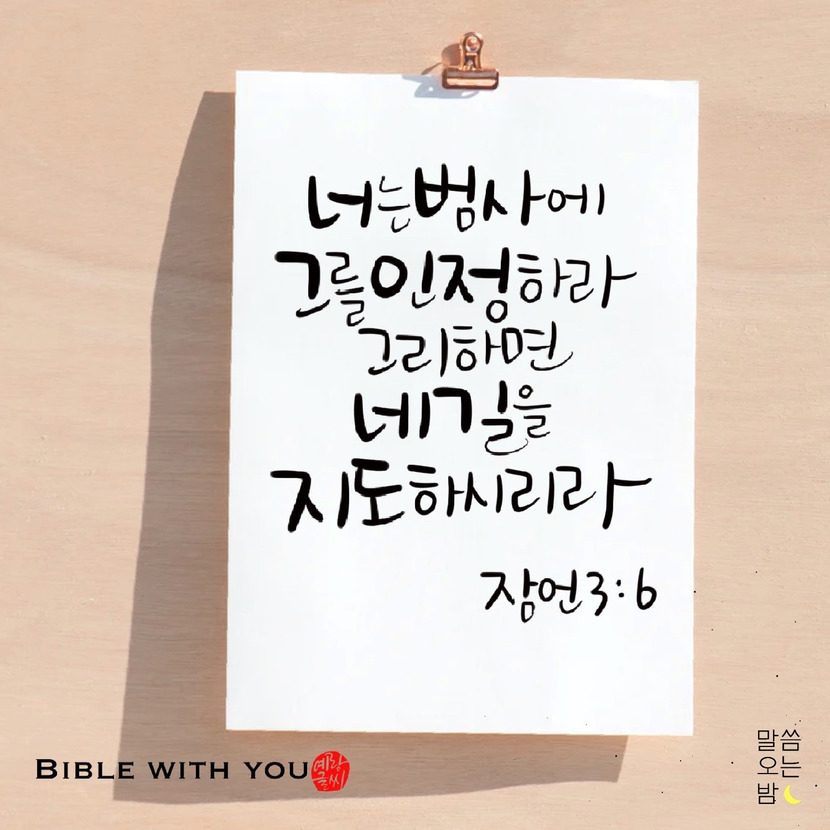 너는 범사에
그를 인정하라
그리하면
네 길을
지도하시리라
잠언 3:6
BIBLE WITH YOU
예랑글씨
말씀
오는
밤